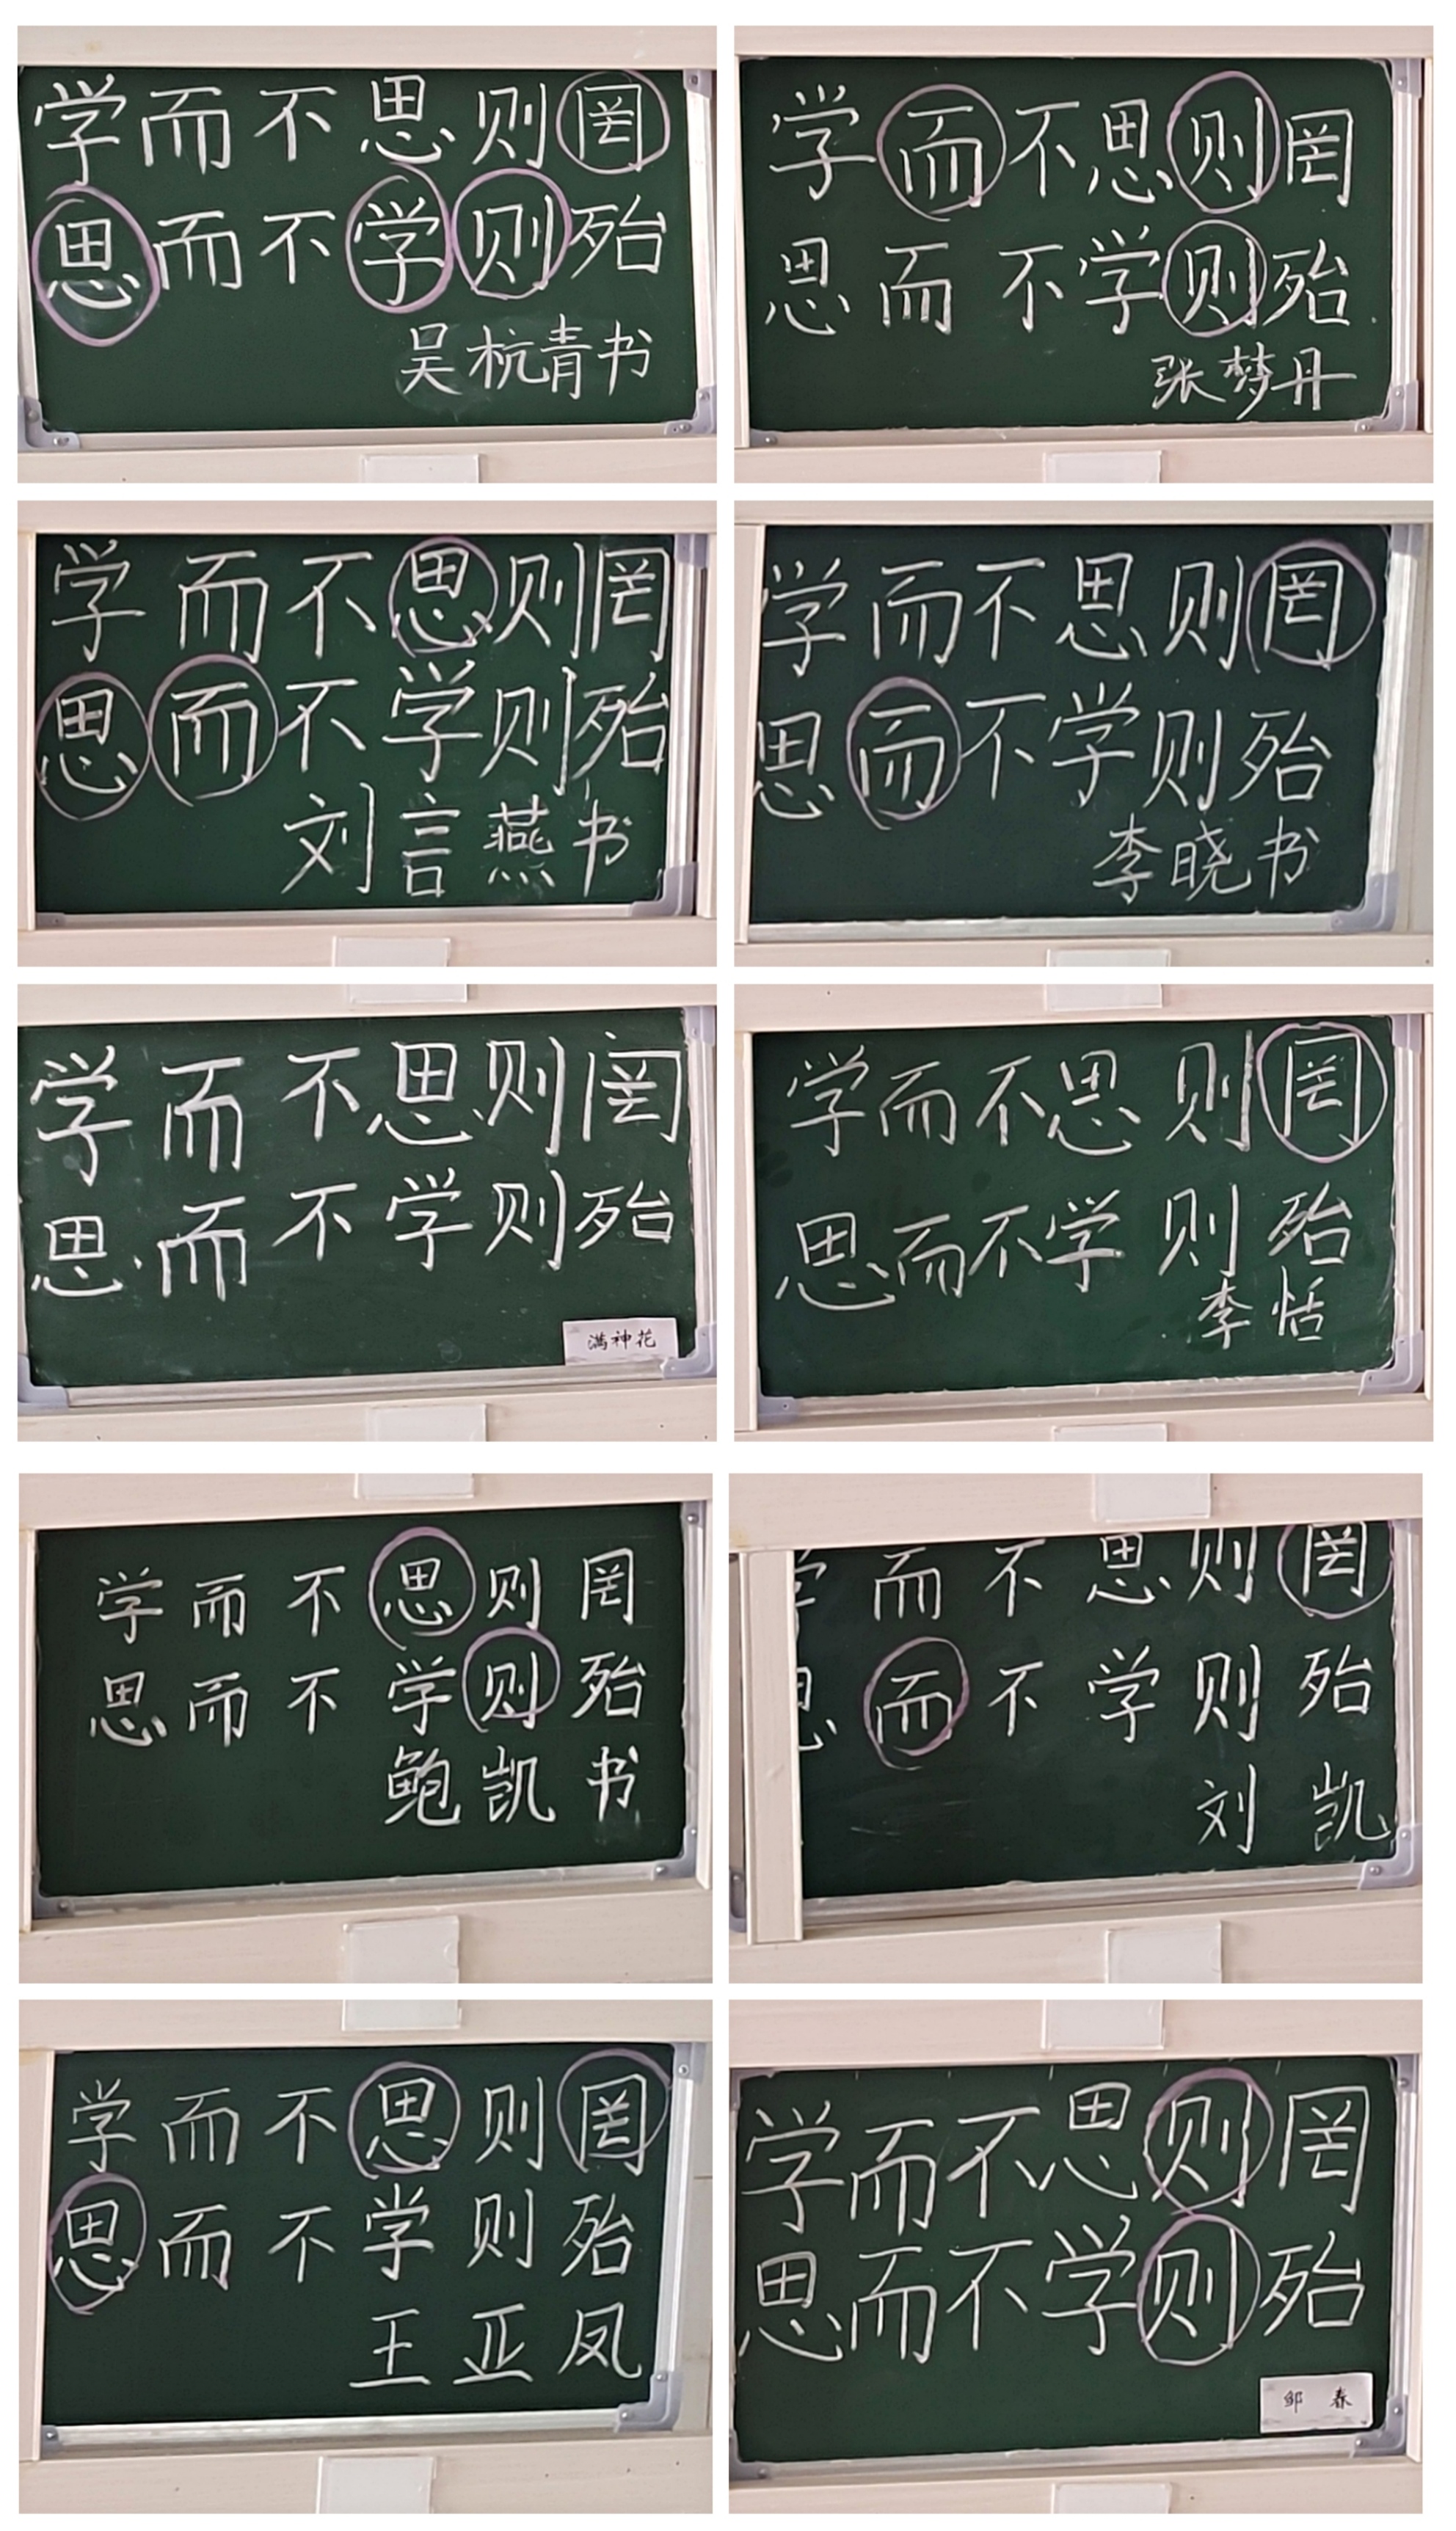 学而不思则罔
思而不学则殆
吴杭青书
学而不思则罔
思而不学则殆
张梦丹
学而不思则罔
思而不学则殆
刘言燕书
学而不思则罔
思而不学则殆
李晓书
学而不思则罔
思而不学则殆
满神花
学而不思则罔
思而不学则殆
李恬
学而不思则罔
思而不学则殆
鲍凯书
而不思则罔
而不学则殆
刘凯
学而不思则罔
思而不学则殆
王亚凤
学而不思则罔
思而不学则殆
邹春